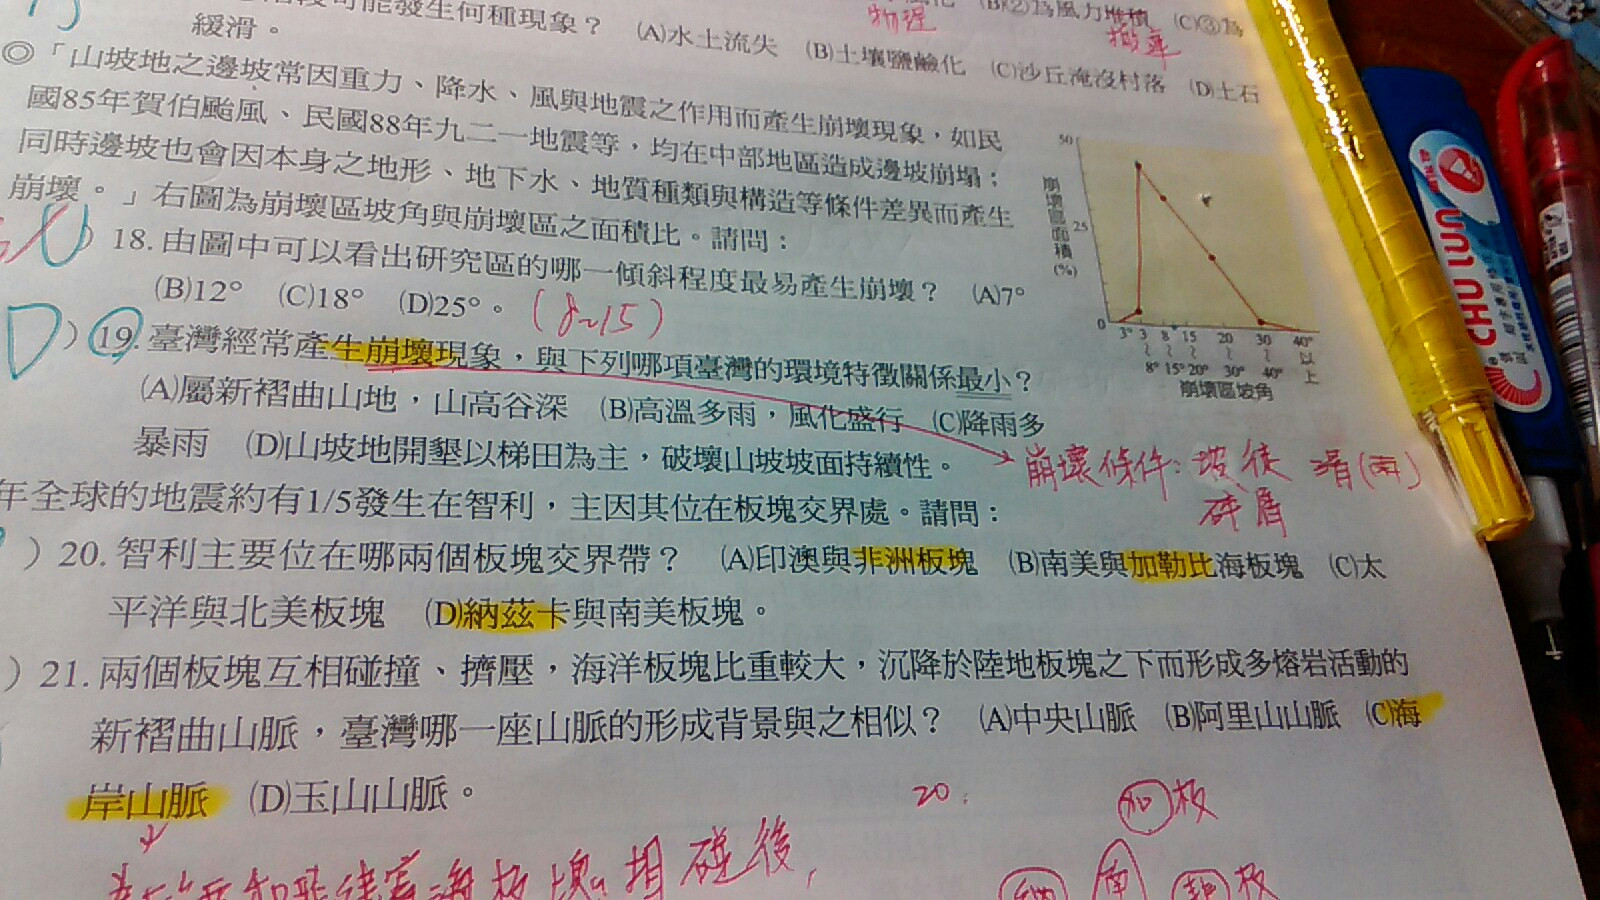 可能發生何種現象？ (A)水土流失 (B)土壤鹽鹼化 (C)沙丘淹沒村落 (D)土石
緩滑。
(B)②為風力堆積 (C)③為
物理
搬運
◎「山坡地之邊坡常因重力、降水、風與地震之作用而產生崩壞現象，如民
國85年賀伯颱風、民國88年九二一地震等，均在中部地區造成邊坡崩塌；
同時邊坡也會因本身之地形、地下水、地質種類與構造等條件差異而產生
崩壞。」右圖為崩壞區坡角與崩壞區之面積比。請問：
）18. 由圖中可以看出研究區的哪一傾斜程度最易產生崩壞？ (A)7°
(B)12° (C)18° (D)25°。 (8~15)
D）19. 臺灣經常產生崩壞現象，與下列哪項臺灣的環境特徵關係最小？
(A)屬新褶曲山地，山高谷深 (B)高溫多雨，風化盛行 (C)降雨多
暴雨 (D)山坡地開墾以梯田為主，破壞山坡坡面持續性。
崩壞條件：坡陡 滑(雨)
碎屑
崩壞區面積(%)
50
25
0
3° 3 8 15 20 30 40°
~ ~ ~ ~ ~ 以
8° 15° 20° 30° 40° 上
崩壞區坡角
年全球的地震約有1/5發生在智利，主因其位在板塊交界處。請問：
）20. 智利主要位在哪兩個板塊交界帶？ (A)印澳與非洲板塊 (B)南美與加勒比海板塊 (C)太
平洋與北美板塊 (D)納茲卡與南美板塊。
）21. 兩個板塊互相碰撞、擠壓，海洋板塊比重較大，沉降於陸地板塊之下而形成多熔岩活動的
新褶曲山脈，臺灣哪一座山脈的形成背景與之相似？ (A)中央山脈 (B)阿里山山脈 (C)海
岸山脈 (D)玉山山脈。
20. 加板
板塊相碰後，
南 板
CHU LIUN